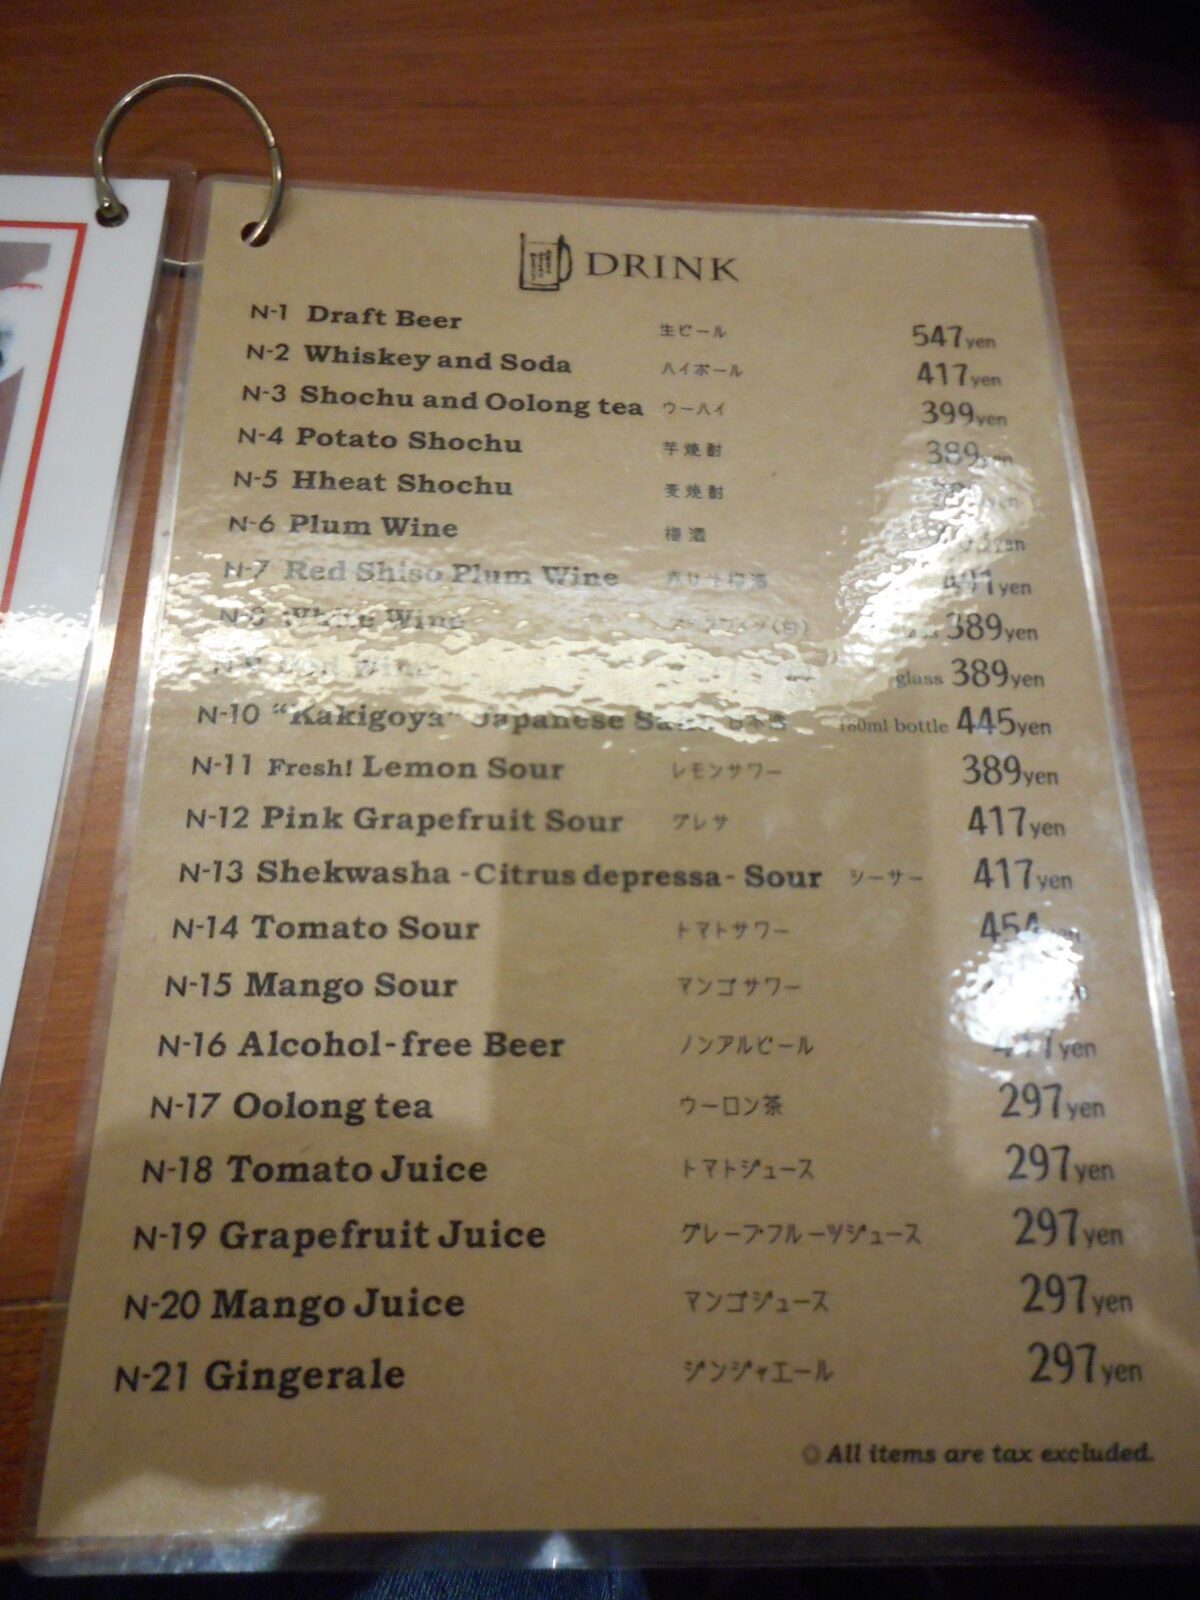 DRINK
N-1 Draft Beer 生ビール 547yen
N-2 Whiskey and Soda ハイボール 417yen
N-3 Shochu and Oolong tea ウーハイ 399yen
N-4 Potato Shochu 芋焼酎 389yen
N-5 Hheat Shochu 麦焼酎 yen
N-6 Plum Wine 梅酒 yen
N-7 Red Shiso Plum Wine 赤シソ梅酒 491yen
N-8 White Wine 389yen
N-9 Wine glass 389yen
N-10 "Kakigoya" Japanese 日本酒 180ml bottle 445yen
N-11 Fresh! Lemon Sour レモンサワー 389yen
N-12 Pink Grapefruit Sour グレサ 417yen
N-13 Shekwasha -Citrus depressa- Sour シーサー 417yen
N-14 Tomato Sour トマトサワー 454yen
N-15 Mango Sour マンゴサワー
N-16 Alcohol-free Beer ノンアルビール yen
N-17 Oolong tea ウーロン茶 297yen
N-18 Tomato Juice トマトジュース 297yen
N-19 Grapefruit Juice グレープフルーツジュース 297yen
N-20 Mango Juice マンゴジュース 297yen
N-21 Gingerale ジンジャエール 297yen
◎All items are tax excluded.